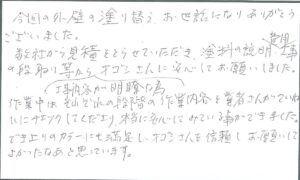 今回の外壁の塗り替え、お世話になりありがとう
ございました。
数社から見積をとらせていただき、塗料の説明、費用、工事
の段取り等からオコミさんに安心してお願いしました。
工事内容が明瞭な為
作業中はそれぞれの段階の作業内容を業者さんがていね
いにチェックしてくださり、本当に安心してみている事ができました。
でき上りのカラーにも満足し、オコミさんを信頼しお願いして
よかったなあと思っています。